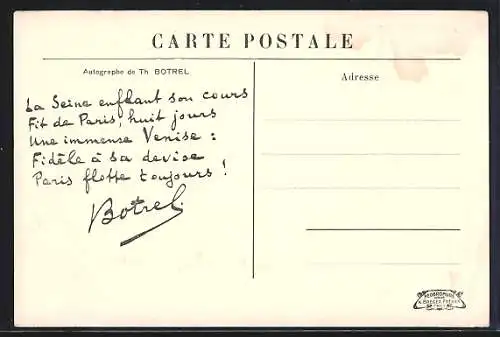 CARTE POSTALE
Autographe de Th BOTREL
Adresse
La Seine enflant son cours
Fit de Paris, huit jours
Une immense Venise :
Fidèle à sa devise
Paris flotte toujours !
Botrel
BREGER FRÈRES